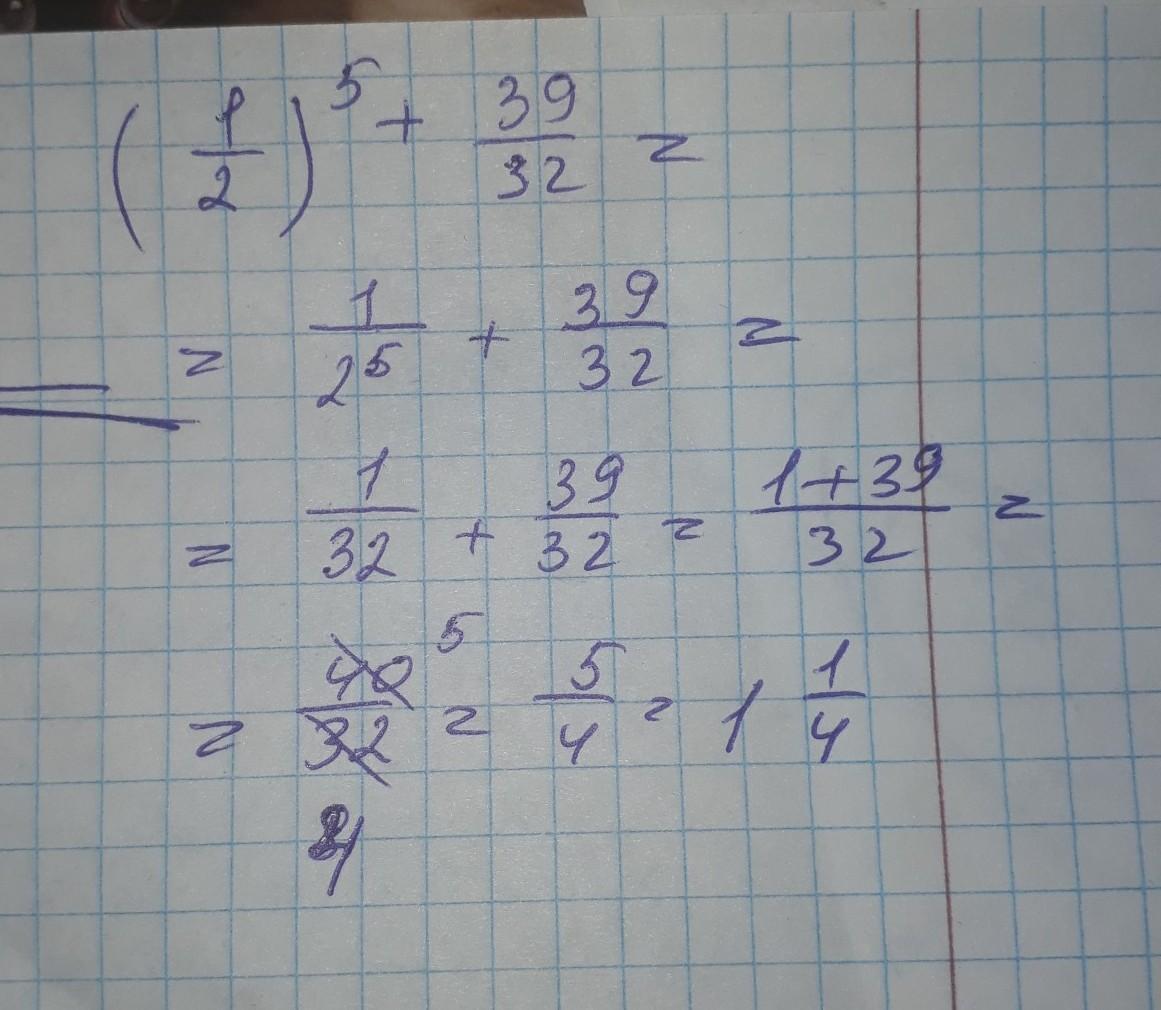 (1/2)^5 + 39/32 =
= 1/2^5 + 39/32 =
= 1/32 + 39/32 = (1+39)/32 =
= 40/32 5 = 5/4 = 1 1/4
4